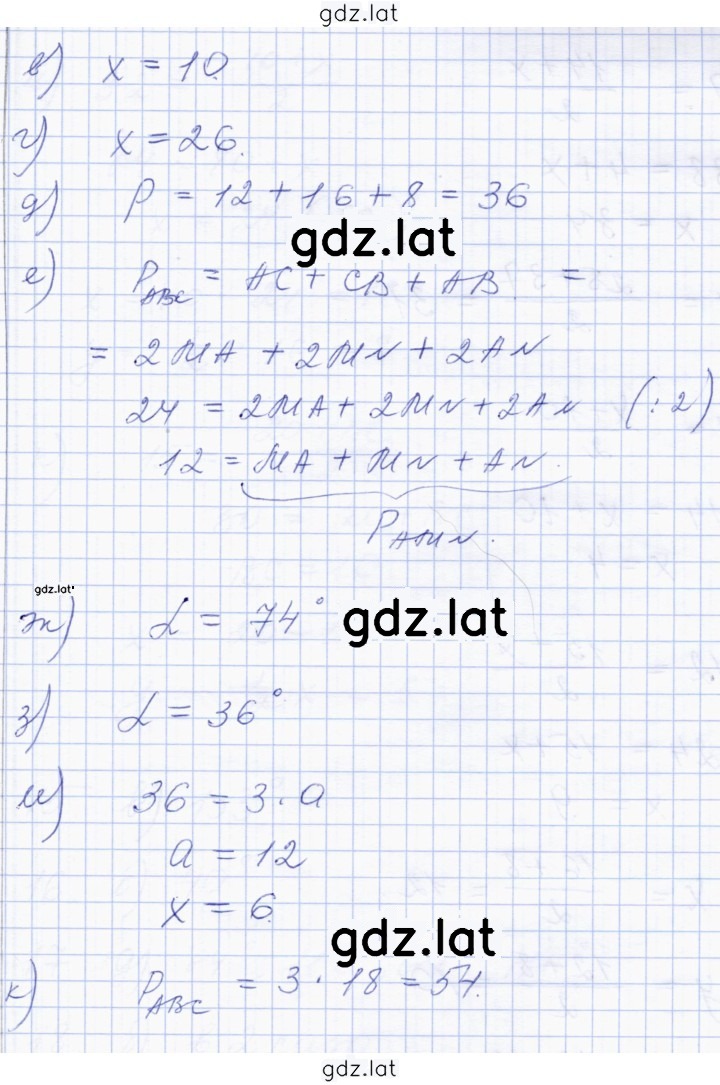 gdz.lat
в) x = 10.
г) x = 26.
д) P = 12 + 16 + 8 = 36
gdz.lat
е) P_ABC = AC + CB + AB =
= 2MA + 2MN + 2AN
24 = 2MA + 2MN + 2AN (:2)
12 = MA + MN + AN.
P_AMN.
gdz.lat
ж) α = 74°
gdz.lat
з) α = 36°
и) 36 = 3 · a
a = 12
x = 6.
gdz.lat
к) P_ABC = 3 · 18 = 54.
gdz.lat